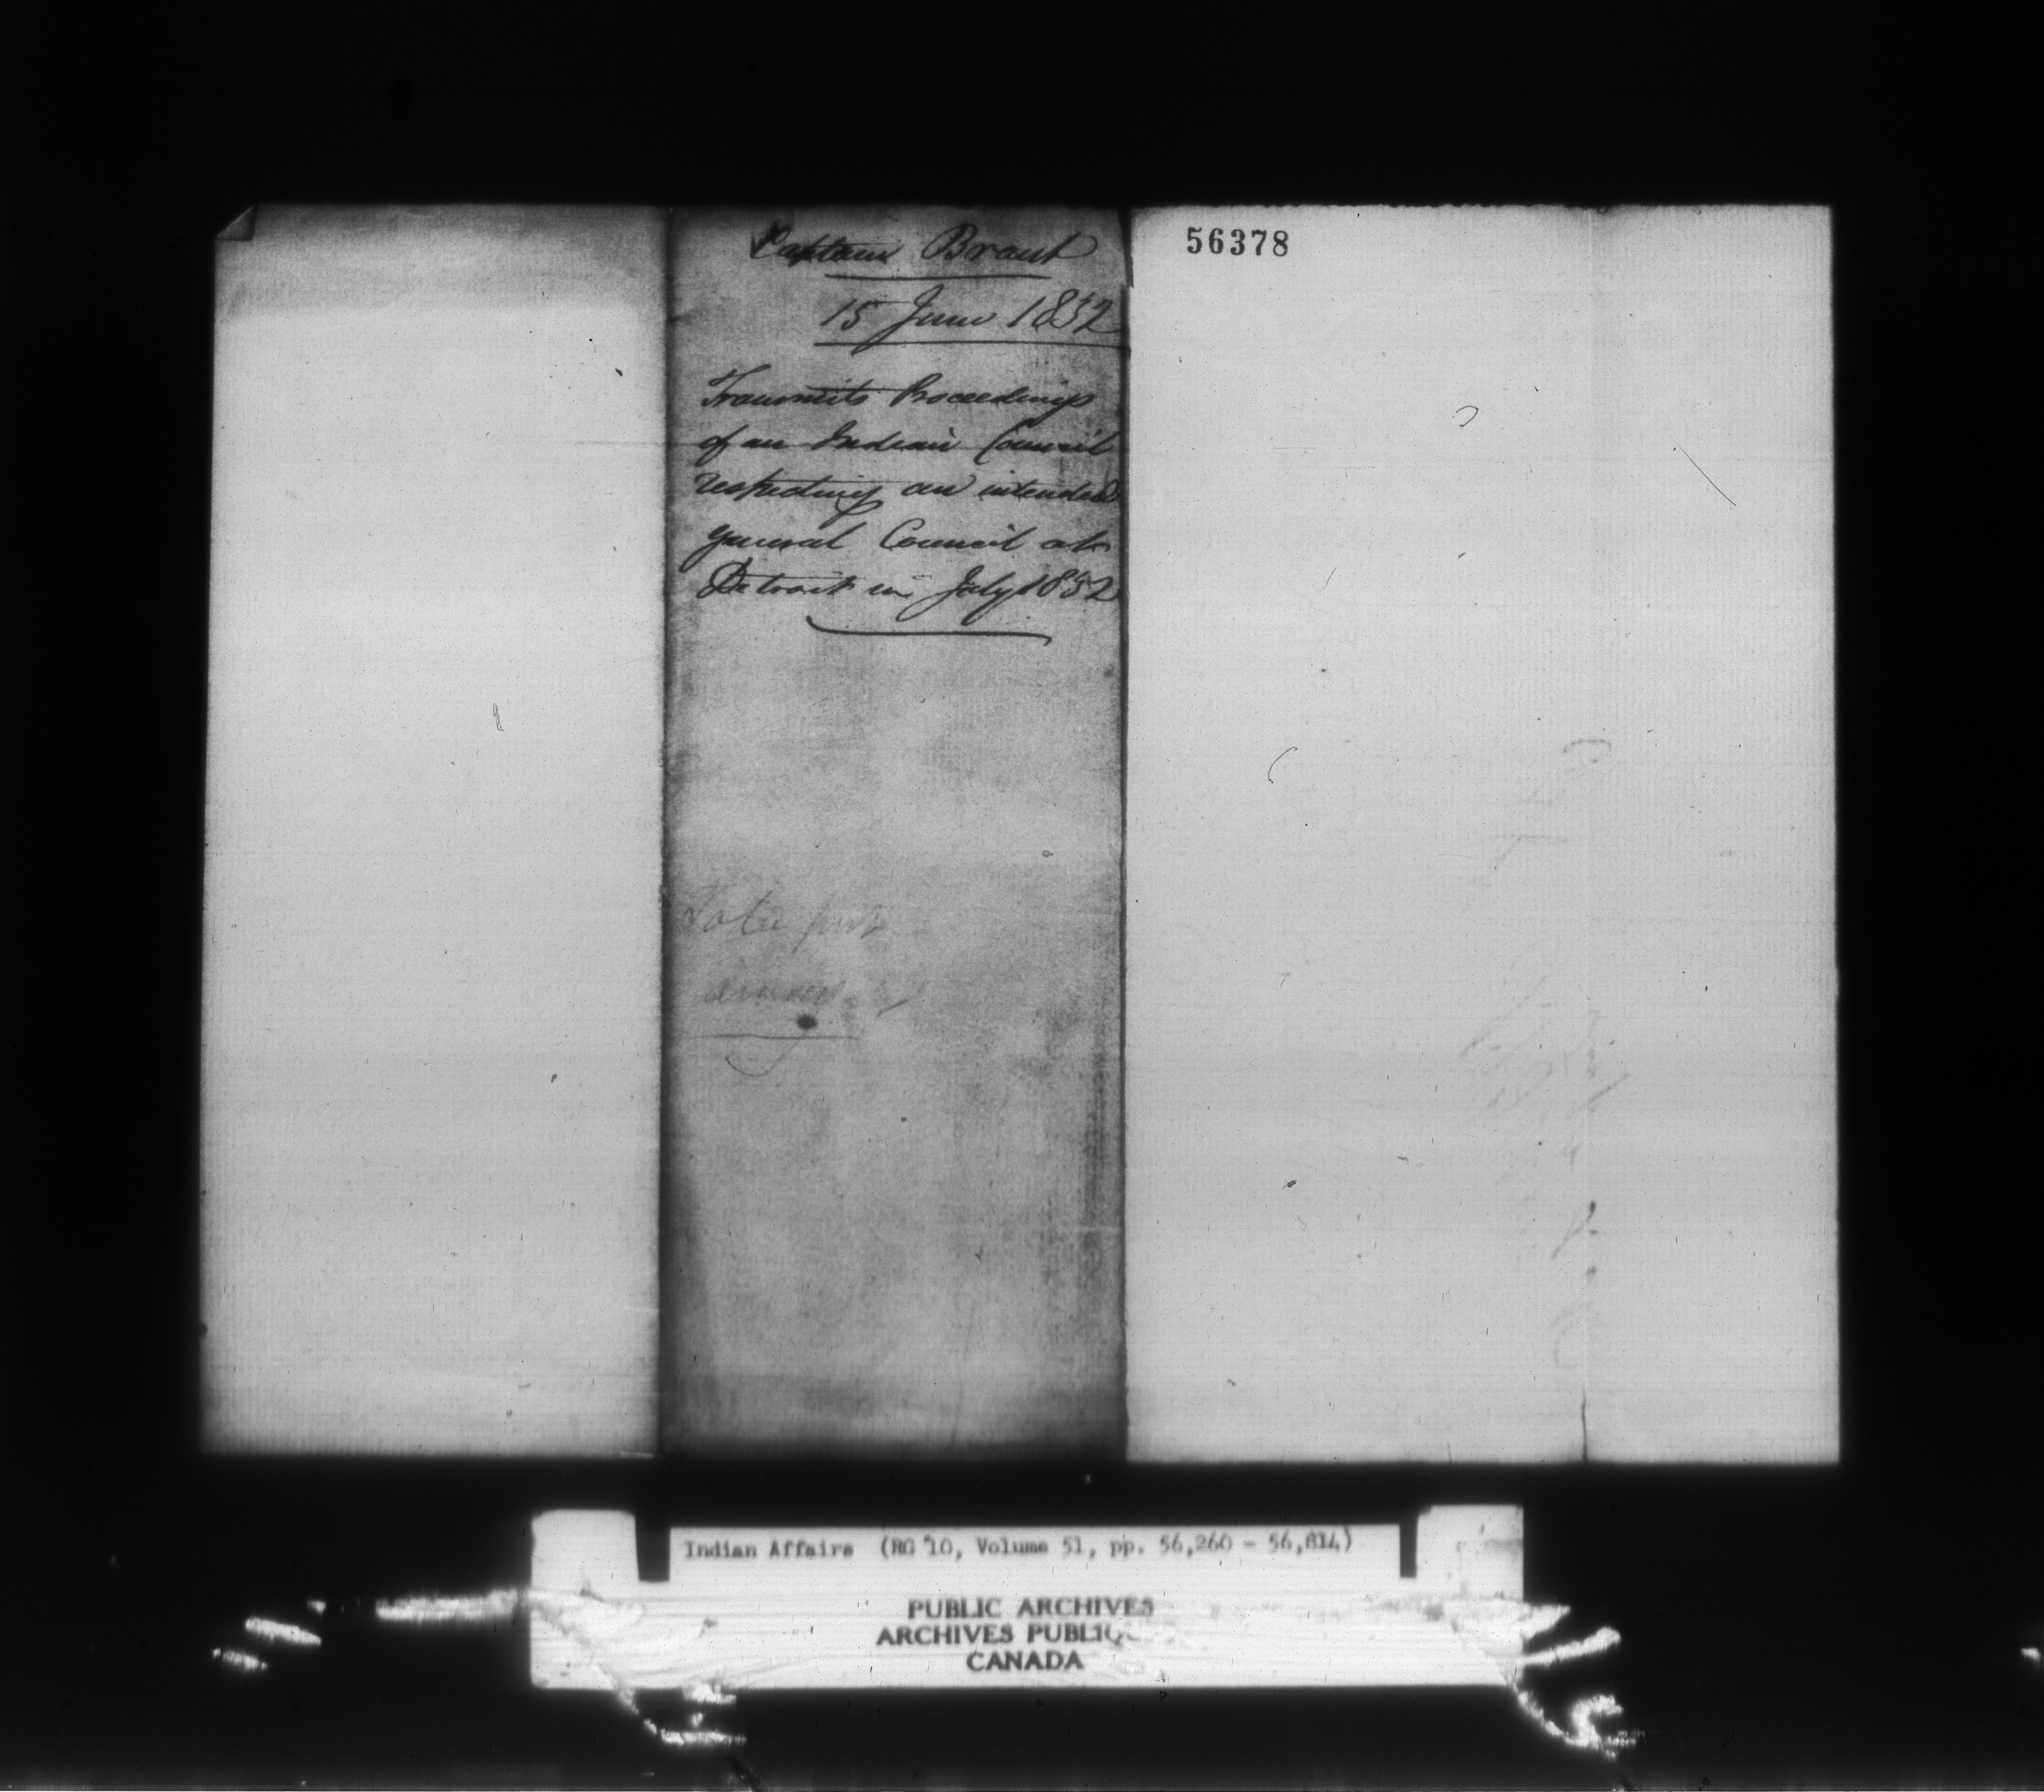 Captain Brant
15 June 1832
Transmits Proceedings
of an Indian Council
respecting an intended
general Council at
Detroit in July 1832
To be put
56378
Indian Affairs (RG 10, Volume 51, pp. 56,260 - 56,814)
PUBLIC ARCHIVES
ARCHIVES PUBLIQ
CANADA